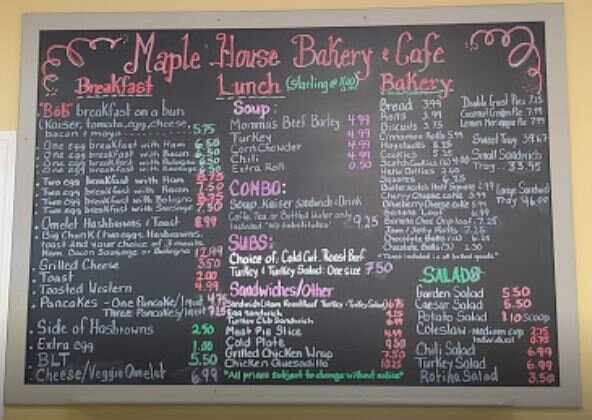 Maple House Bakery & Cafe
Breakfast
"Bob" breakfast on a bun
(Kaiser, tomato, egg, cheese,
bacon & mayo 5.75
One egg breakfast with Ham 6.50
One egg breakfast with Bacon
One egg breakfast with Bologna
One egg breakfast with Sausage 6.50
Two egg breakfast with Ham 8.75
Two egg breakfast with Bacon 7.50
Two egg breakfast with Bologna 8.75
Two egg breakfast with Sausage 7.50
Omelet Hashbrowns & Toast 8.99
Big Chunk (two eggs, Hashbrowns,
toast and your choice of 3 meats
Ham Bacon Sausage or Bologna 12.99
Grilled Cheese 3.50
Toast 2.00
Toasted Western 4.99
Pancakes - One Pancake/1 meat 4.75
Three Pancakes/1 meat 7.25
Side of Hasbrowns 2.50
Extra egg 1.00
BLT 5.50
Cheese/Veggie Omelet 6.99
Lunch (Starting @
Soup:
Momma's Beef Barley 4.99
Turkey 4.99
Corn Chowder 4.99
Chili 4.99
Extra Roll 0.50
COMBO:
Soup, Kaiser Sandwich & Drink
Coffee Tea, or Bottled Water only
Included "No Substitutes" 9.25
SUBS:
Choice of: Cold Cut, Roast Beef
Turkey & Turkey Salad: One size 7.50
Sandwiches/Other
Sandwich (Ham Roastbeef Turkey Turkey Salad) 6.75
Egg Sandwich
Turkey Club Sandwich
Meat Pie Slice 4.99
Cold Plate 9.50
Grilled Chicken Wrap 7.50
Chicken Quesadilla 10.25
"All prices subject to change without notice"
Bakery
Bread 3.99
Rolls 3.99
Biscuits 3.75
Cinnamon Rolls 5.99
Haystacks 6.25
Cookies 5.25
Scotch Cookies
Ham Buttons 2.50
Squares
Butterscotch Half Square 2.99
Cherry Cheese cake
Blueberry Cheese cake 5.99
Banana Loaf 6.99
Banana Choc Chip loaf 7.25
Jam/Jelly Rolls 7.25
Chocolate Balls
Chocolate Balls
"Taxes included in all baked goods"
Double Crust Pies 7.15
Coconut Cream Pie 7.99
Lemon Meringue Pie 7.99
Sweet Tray 39.67
Small Sandwich
Tray.. 33.95
Large Sandwich
Tray 46.00
SALADS
Garden Salad 5.50
Caesar Salad 5.50
Potato Salad $1.10 Scoop
Coleslaw - medium cup 2.75
Individual 0.75
Chili Salad 6.99
Turkey Salad 6.99
Rotina Salad 3.50